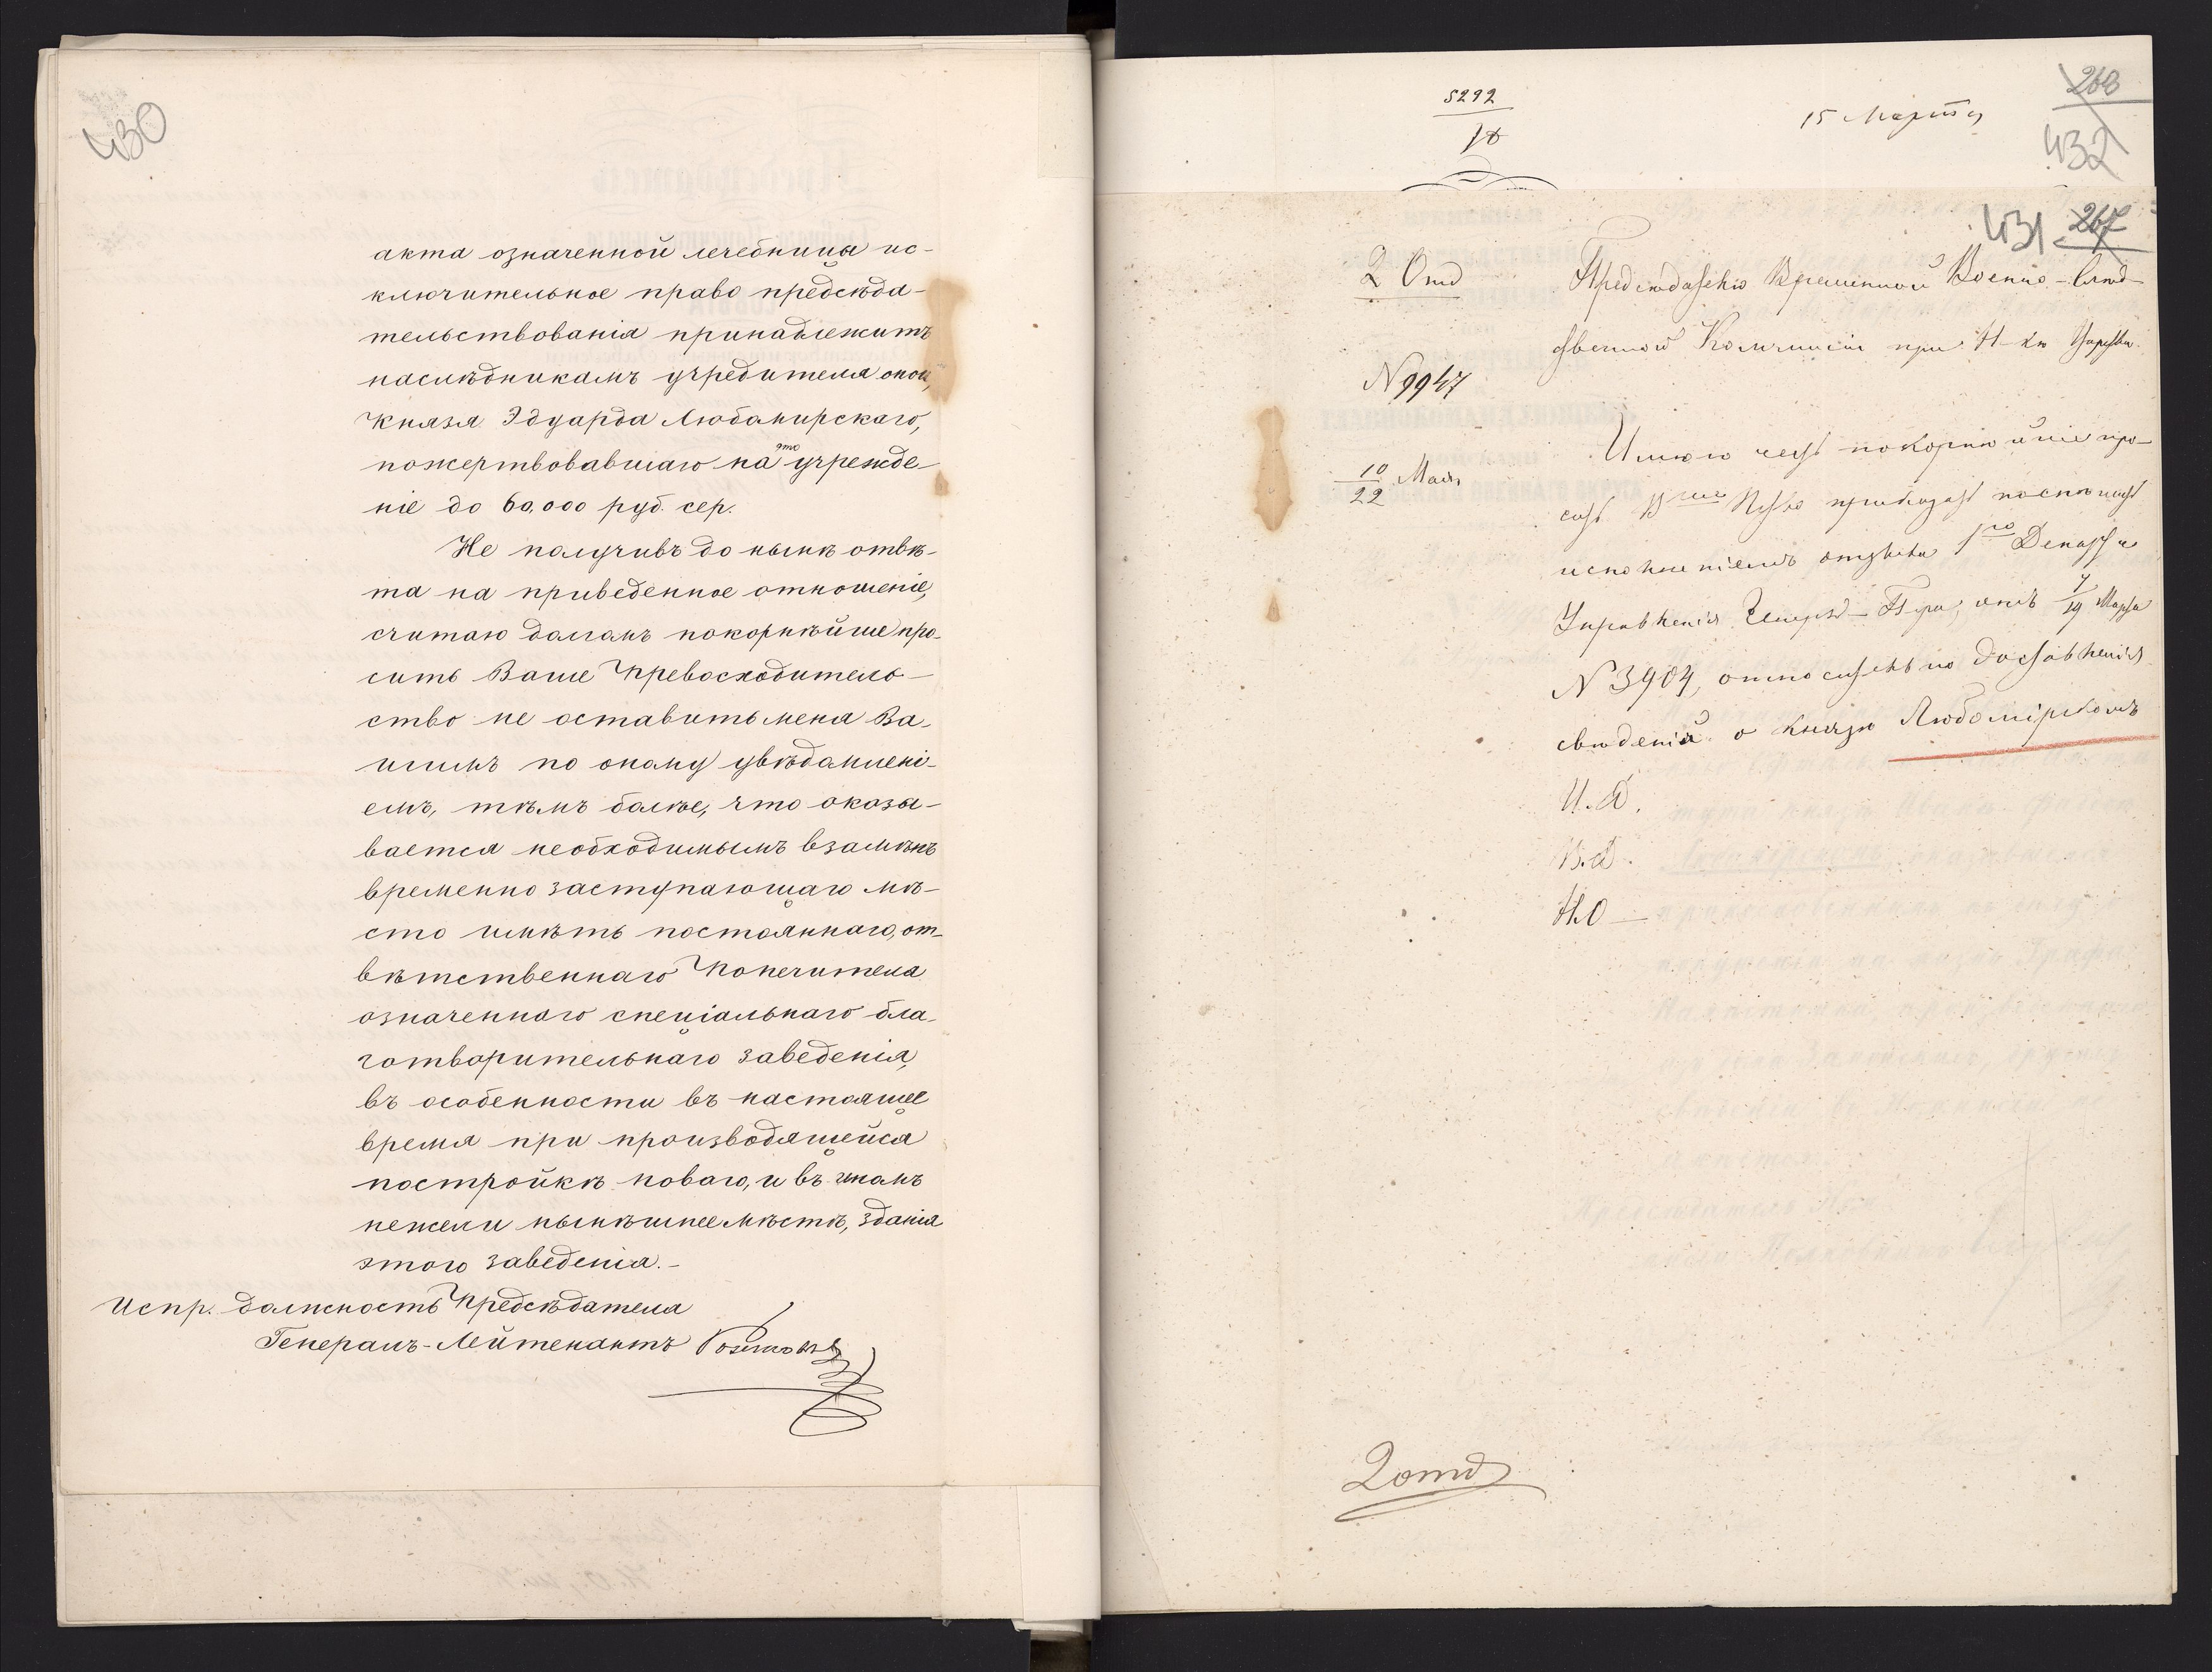 430
акта означенной лечебницы ис-
ключительное право предсѣда-
тельствованія принадлежитъ
наслѣдникамъ учредителя оной,
Князя Эдуарда Любомирскаго,
пожертвовавшаго на это учрежде-
ніе до 60.000 руб. сер.
Не получивъ до нынѣ отвѣ-
та на приведенное отношеніе,
считаю долгомъ покорнѣйше про-
сить Ваше Превосходитель-
ство не оставить меня Ва-
шимъ по оному увѣдомлені-
емъ, тѣмъ болѣе, что оказы-
вается необходимымъ взамѣнъ
временно заступающаго мѣ-
сто имѣть постояннаго, от-
вѣтственнаго Попечителя
означеннаго спеціальнаго бла-
готворительнаго заведенія,
въ особенности въ настоящее
время при производящейся
постройкѣ новаго, и въ иномъ
нежели нынѣшнее мѣстѣ, зданія
этого заведенія.-
Испр. должность Предсѣдателя
Генералъ-Лейтенантъ
5292
15 Марта
268
432
431 267
2 Отд
Предсѣдателю Временной Военно-Слѣд-
ственной Коммисіи при Н-кѣ Царства
N 9947
10/22 Мая
Имѣю честь покорнѣйше про-
сить В приказать поспѣшить
исполненіемъ отзыва 1го Департа
Управленія Генералъ-П отъ 7/19 Марта
N 3904, относительно доставленія
свѣдѣній о Князѣ Любомірскомъ
И.Д.
В.Д.
Н.О-
2 отд